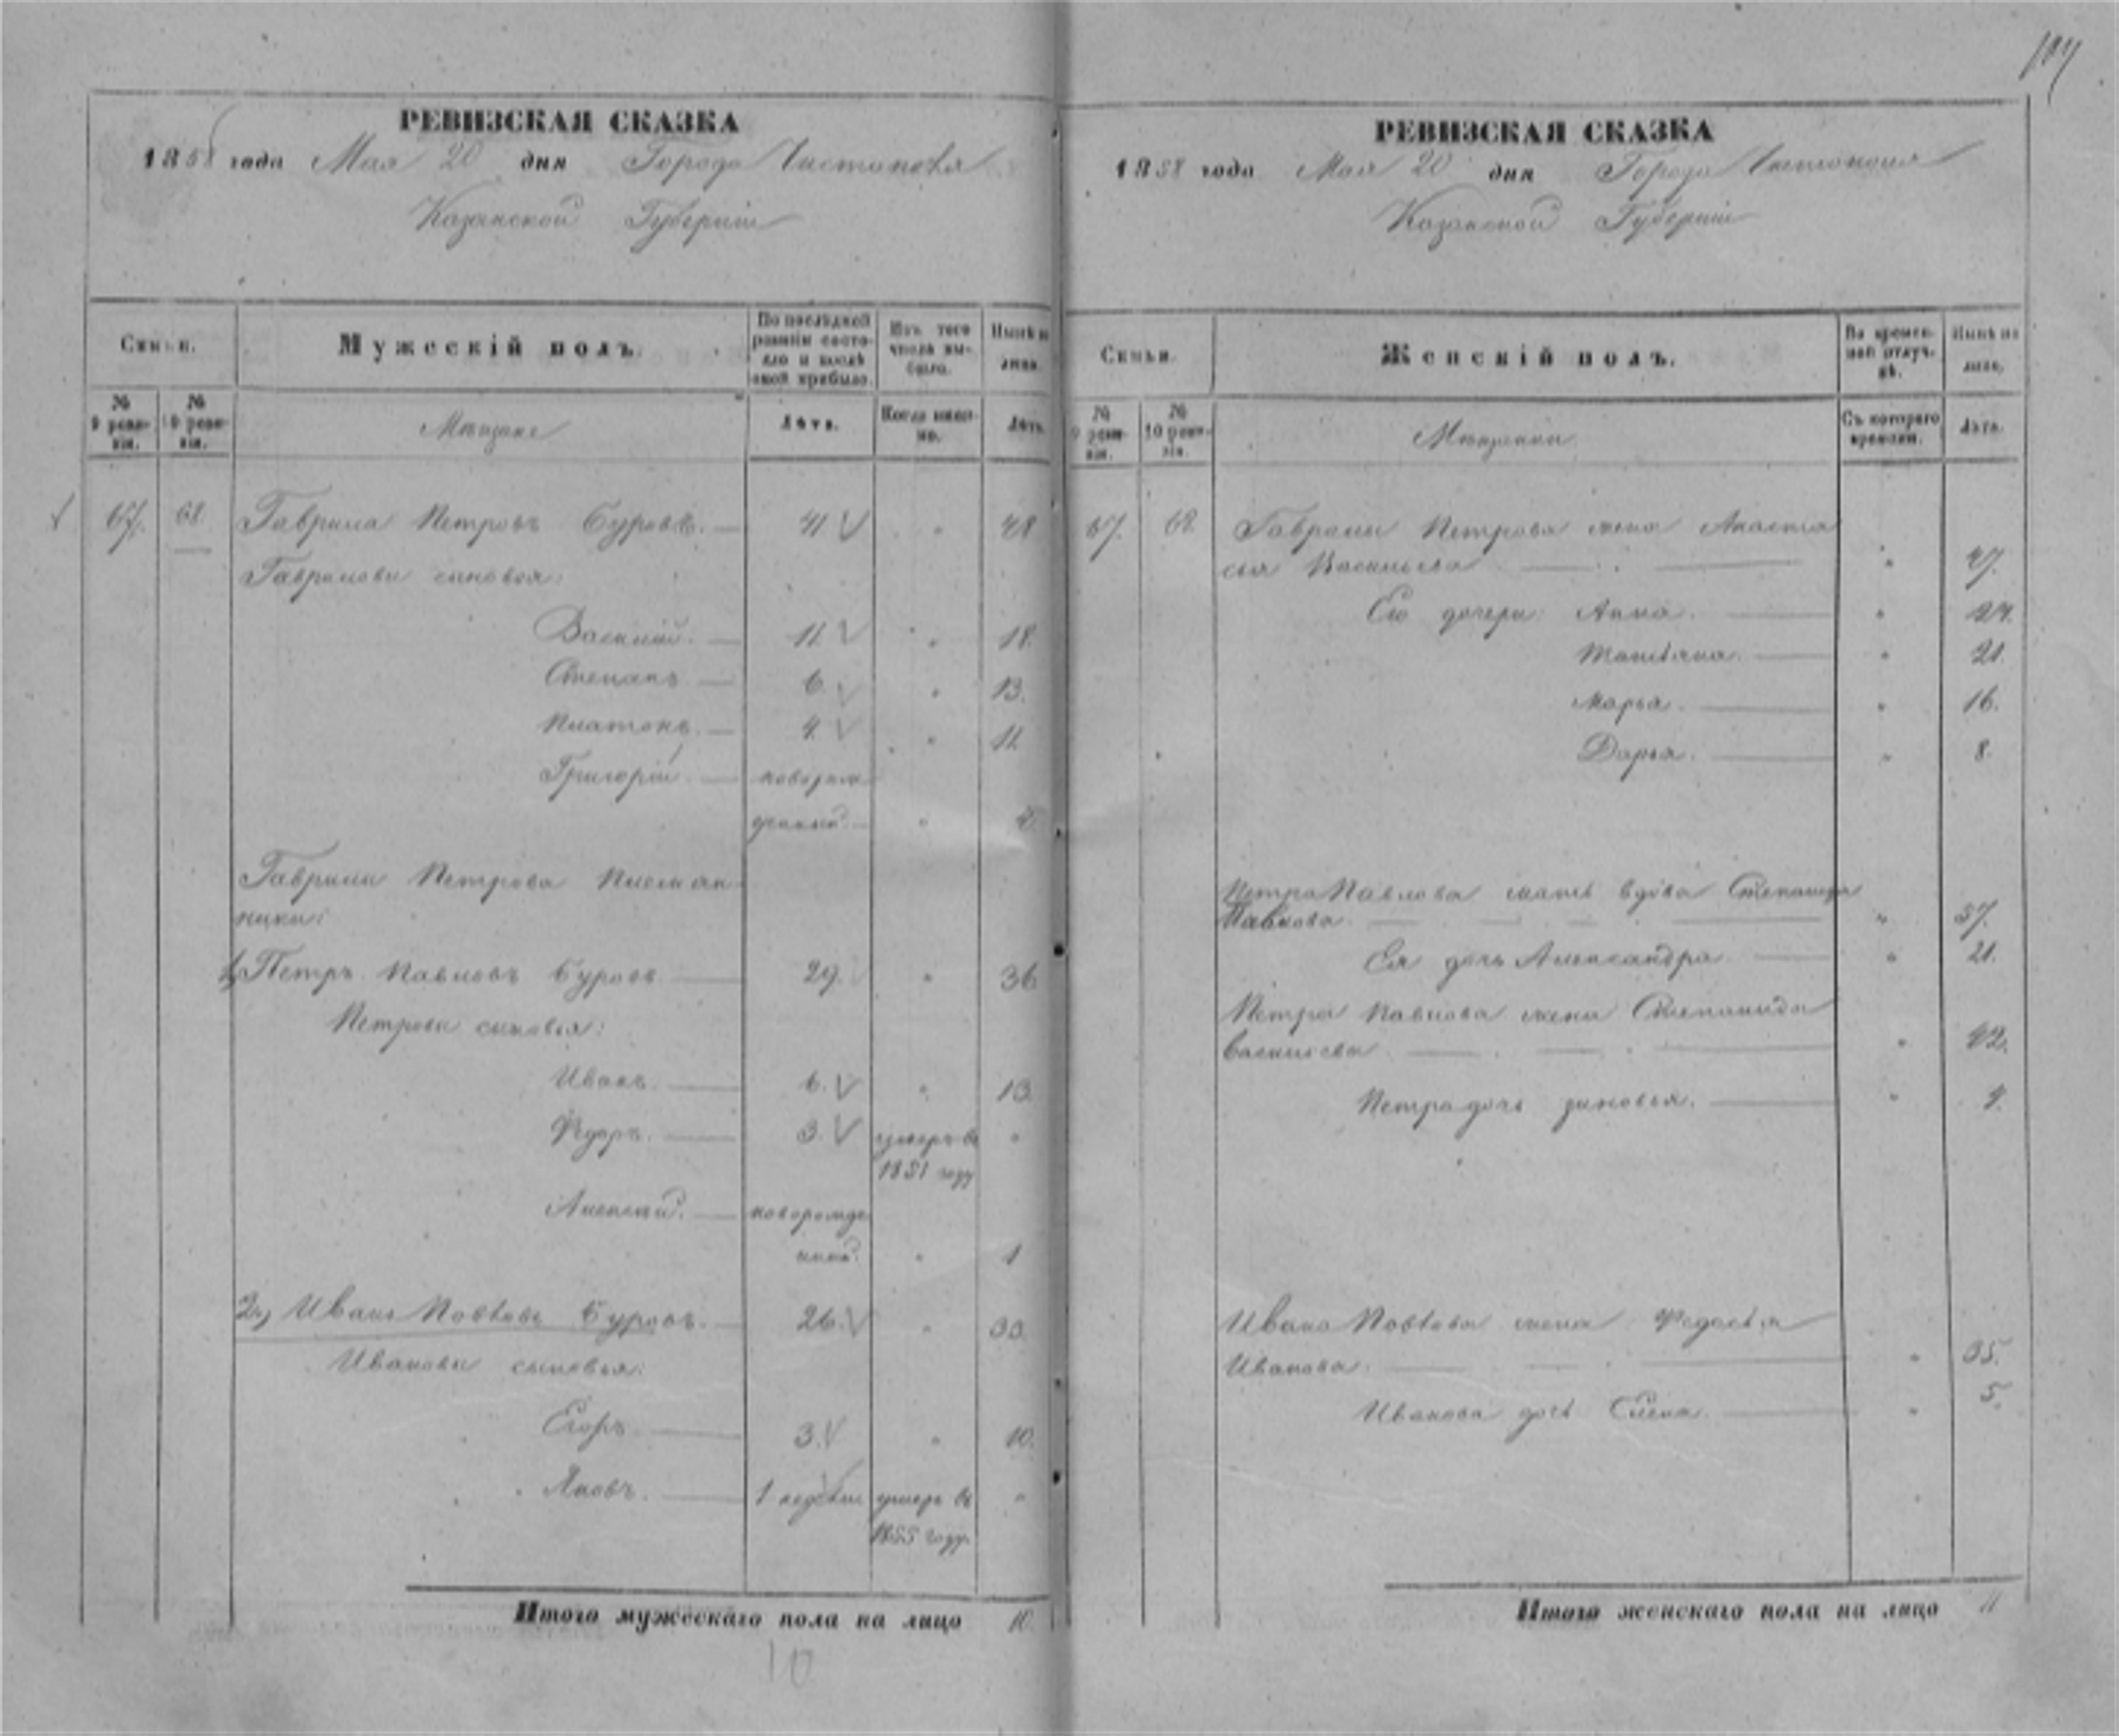 РЕВИЗСКАЯ СКАЗКА
1858 года Мая 20 дня Города Чистополя
Казанской Губерніи
Семьи.
Мужескій полъ.
По послѣдней ревизіи состояло и послѣ оной прибыло.
Изъ того числа выбыло.
Нынѣ на лицо.
№ 9 ревизіи.
№ 10 ревизіи.
Мѣщане
Лѣта.
Когда именно.
Лѣта.
67. 68. Гаврила Петровъ Буровъ. 41 " 48
Гавриловы сыновья:
Василій. 11. " 18.
Степанъ. 6. " 13.
Платонъ. 4. " 11.
Григорій. новорож
денный. " 4.
Гаврилы Петрова племян
ники:
1, Петръ Павловъ Буровъ. 29. " 36
Петровы сыновья:
Иванъ. 6. " 13.
Ѳедоръ. 3. умеръ въ "
1851 году
Алексѣй. новорожде
нный. " 1
2, Иванъ Павловъ Буровъ. 26. " 33.
Ивановы сыновья:
Егоръ. 3. " 10.
Яковъ. 1 недѣли умеръ въ "
1855 году.
Итого мужескаго пола на лицо 10.
10
РЕВИЗСКАЯ СКАЗКА
1858 года Мая 20 дня Города Чистополя
Казанской Губерніи
Семьи.
Женскій полъ.
Во временной отлучкѣ.
Нынѣ на лицо.
№ 9 ревизіи.
№ 10 ревизіи.
Мѣщанки
Съ котораго времени.
Лѣта.
67. 68. Гаврилы Петрова жена Анаста
сья Васильева " 47.
Его дочери: Анна. " 24.
Татьяна. " 21.
Марья. " 16.
Дарья. " 8.
Петра Павлова мать вдова Степанида
Павлова. " 57.
Ея дочь Александра. " 21.
Петра Павлова жена Степанида
Васильева. " 42.
Петра дочь Зиновья. " 9.
Ивана Павлова жена Ѳедосья
Иванова. " 35.
Иванова дочь Елена. " 5.
Итого женскаго пола на лицо 11